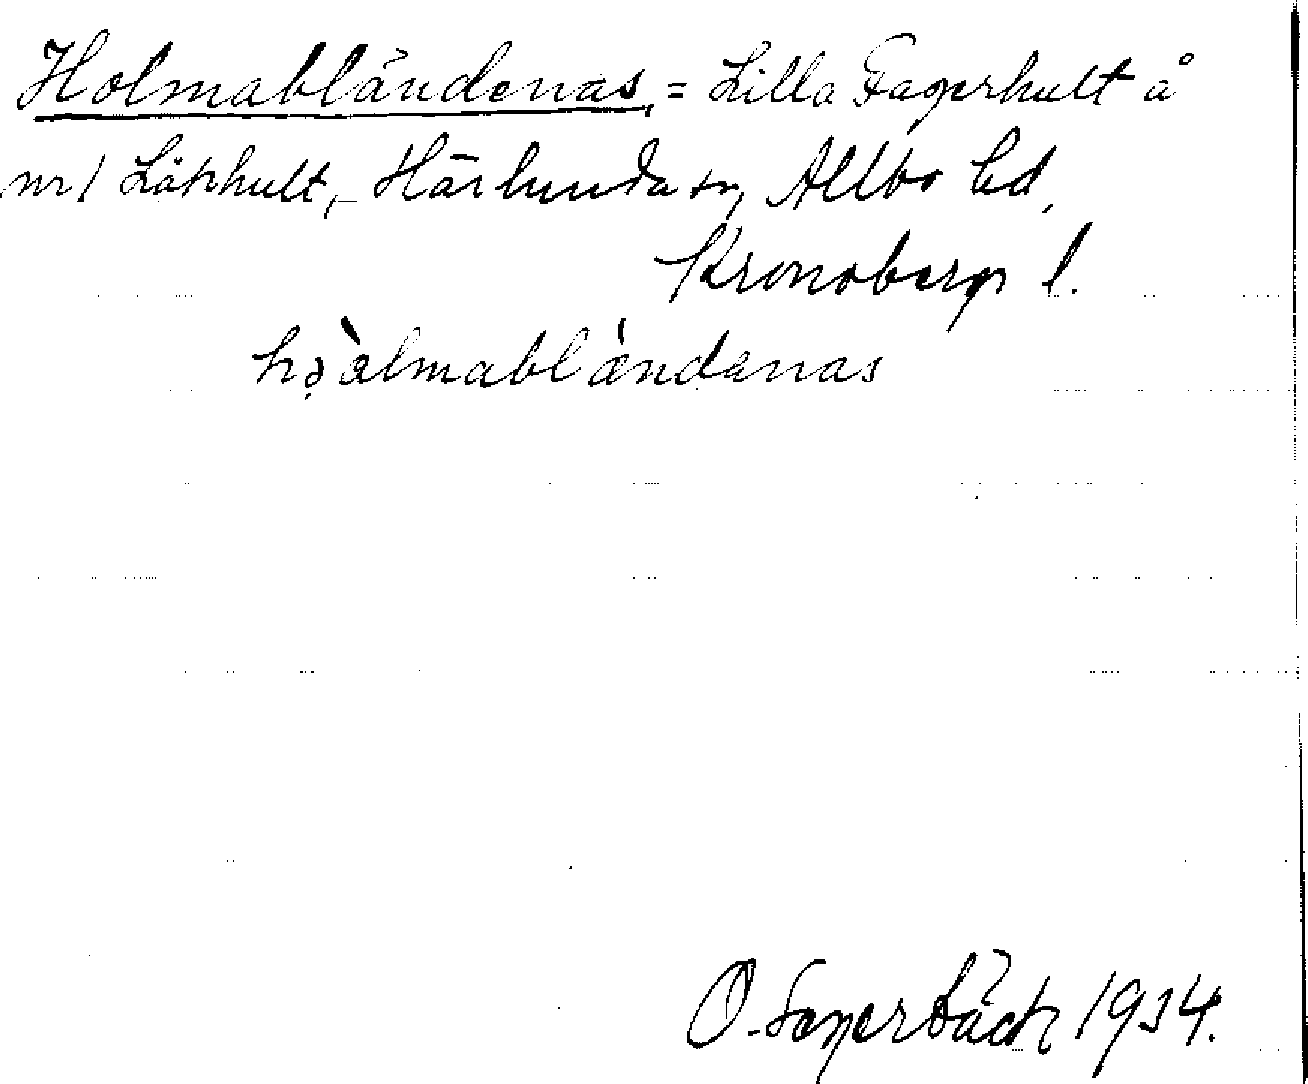 Holmabländenas, = Lilla Fagerhult å
nr 1 Läkhult, Härlunda sn, Allbo hd,
Kronobergs l.
hɔ̀almablǽndenas
O. Fagerbäck 1934.